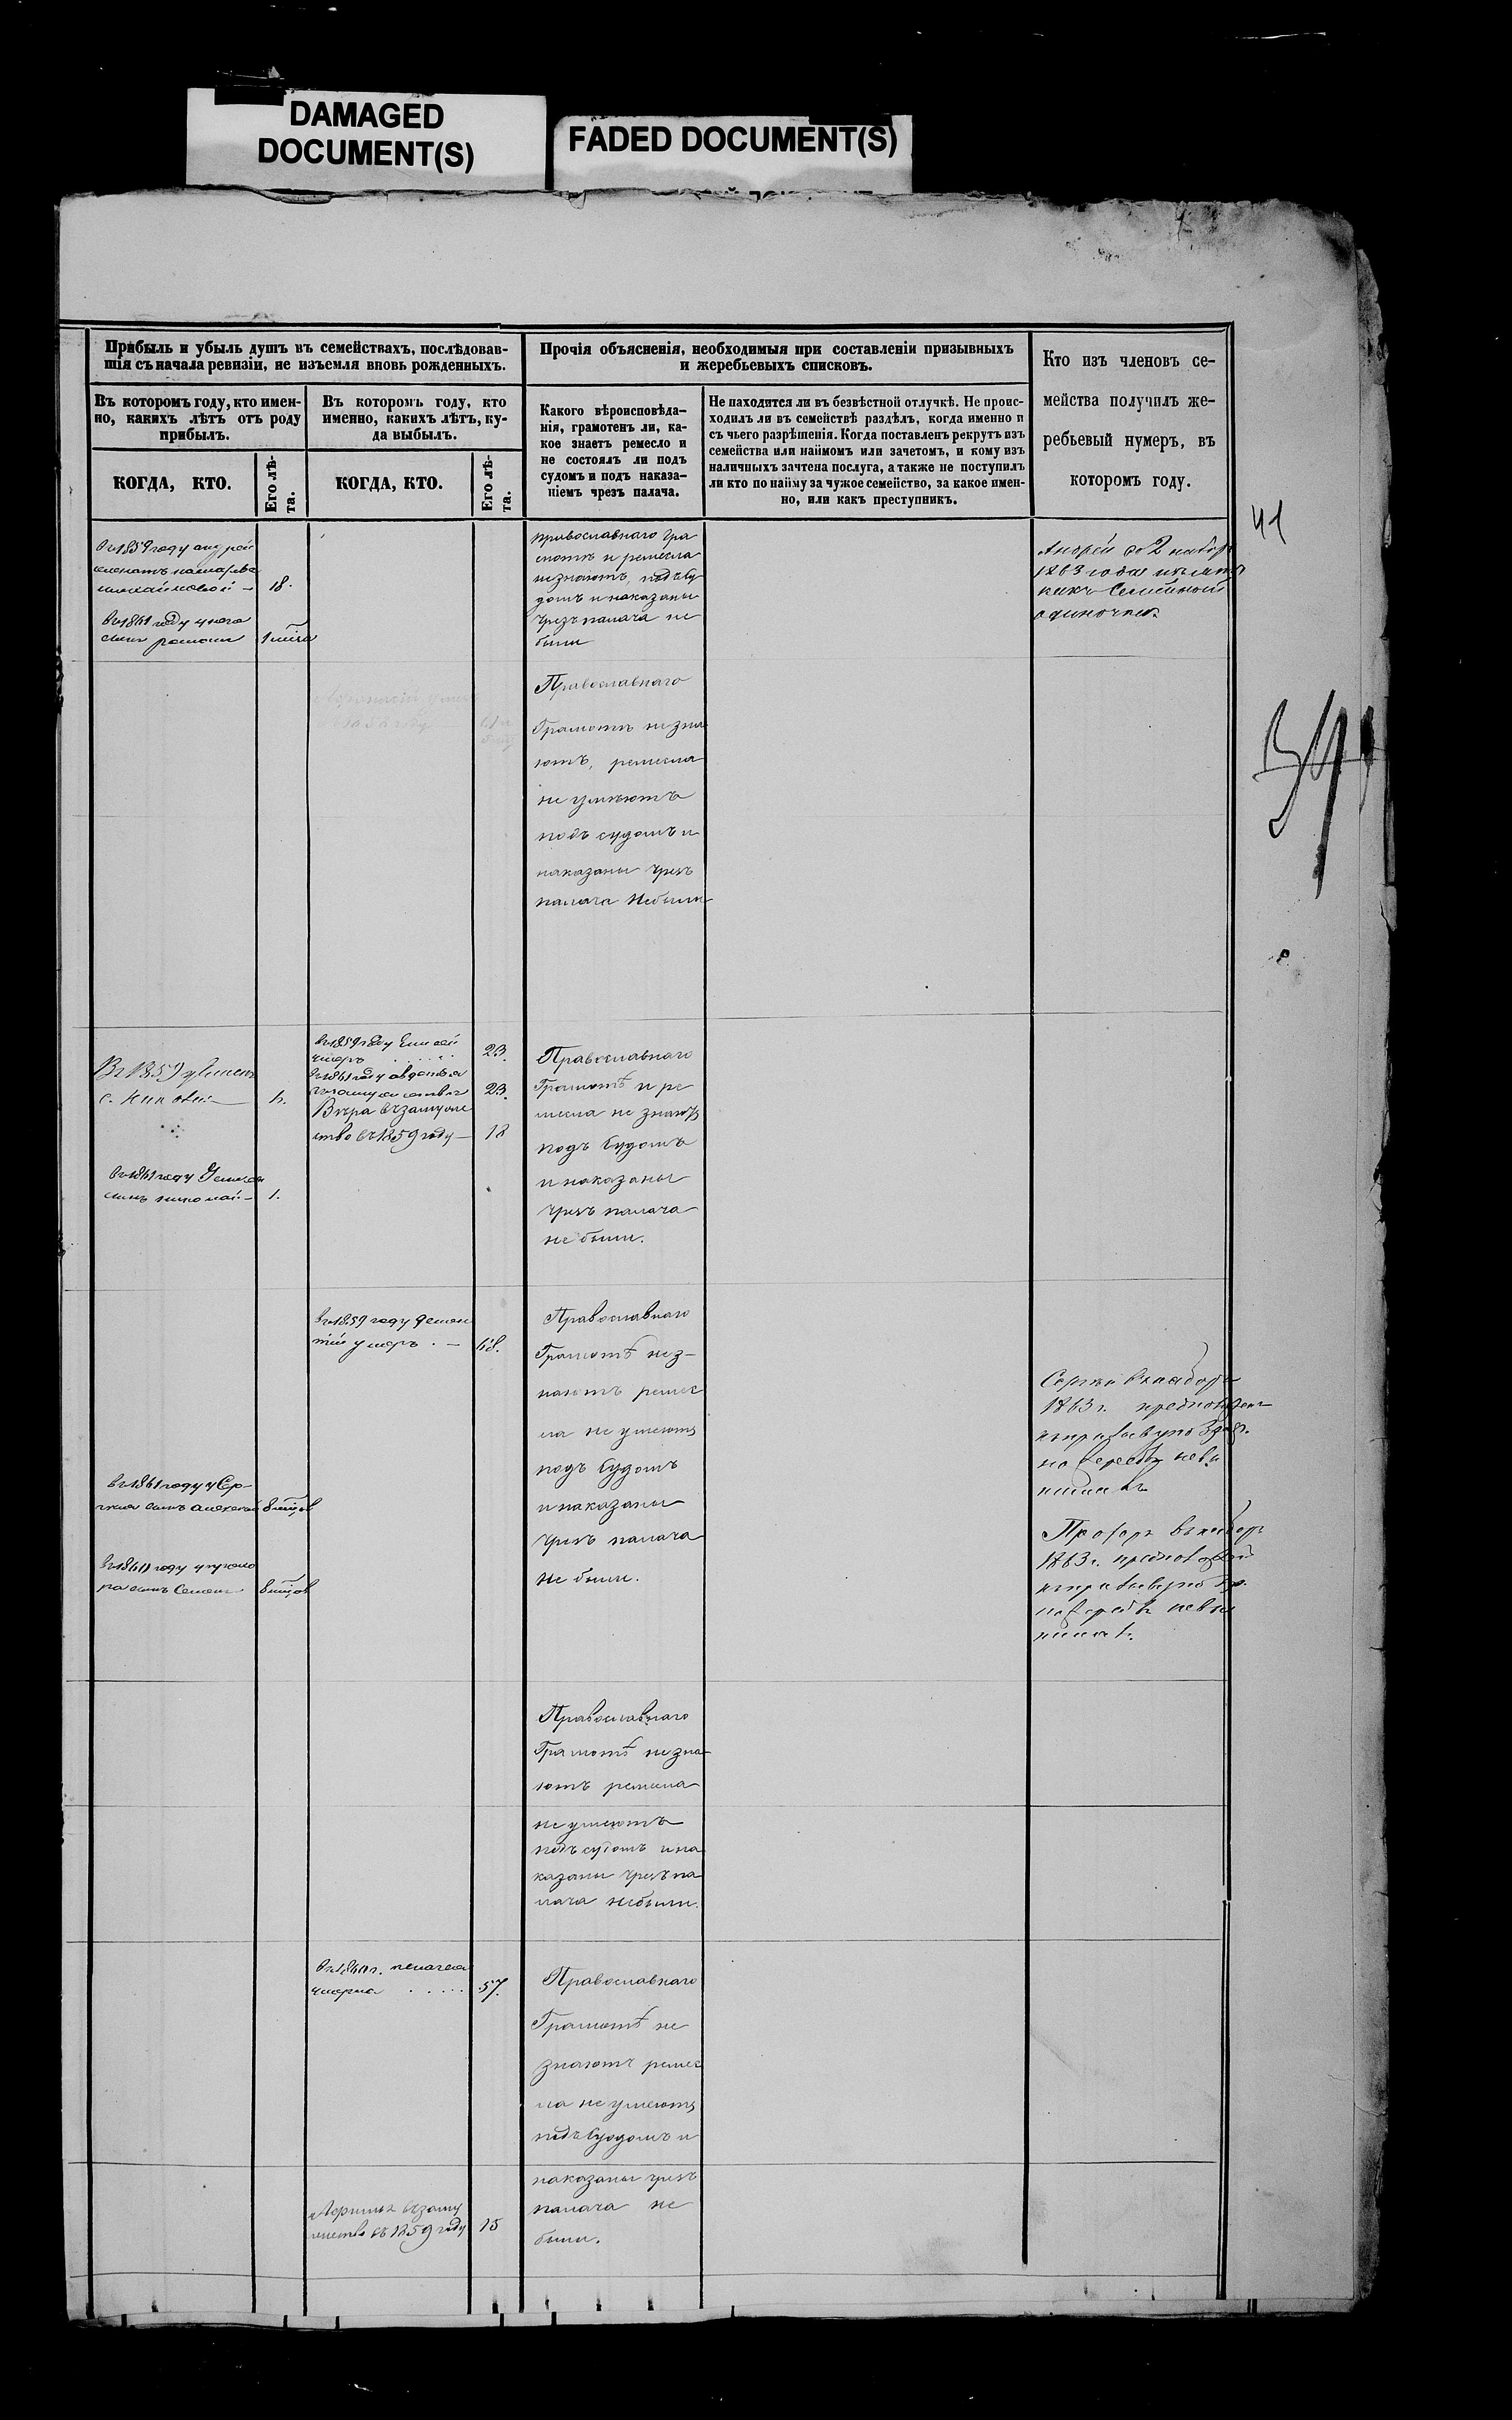 DAMAGED
DOCUMENT(S)
FADED DOCUMENT(S)
Прибыль и убыль душъ въ семействахъ, послѣдовав-
шія съ начала ревизіи, не изъемля вновь рожденныхъ.
Въ которомъ году, кто имен-
но, какихъ лѣтъ отъ роду
прибылъ.
КОГДА, КТО.
Его лѣ-
та.
Въ которомъ году, кто
именно, какихъ лѣтъ, ку-
да выбылъ.
КОГДА, КТО.
Его лѣ-
та.
Прочія объясненія, необходимыя при составленіи призывныхъ
и жеребьевыхъ списковъ.
Какого вѣроисповѣда-
нія, грамотенъ ли, ка-
кое знаетъ ремесло и
не состоялъ ли подъ
судомъ и подъ наказа-
ніемъ чрезъ палача.
Не находится ли въ безвѣстной отлучкѣ. Не проис-
ходилъ ли въ семействѣ раздѣлъ, когда именно и
съ чьего разрѣшенія. Когда поставленъ рекрутъ изъ
семейства или наймомъ или зачетомъ, и кому изъ
наличныхъ зачтена послуга, а также не поступилъ
ли кто по найму за чужое семейство, за какое имен-
но, или какъ преступникъ.
Кто изъ членовъ се-
мейства получилъ же-
ребьевый нумеръ, въ
которомъ году.
41
въ 1859 году андрей
женатъ на марѳе
михайловой — 18.
въ 1861 году у него
сынъ 1 міся
православнаго гра
мотѣ и ремесла
незнаютъ, подъ су
домъ и наказаны
чрезъ палача не
были
Андрей во 2 набор
1863 года
какъ Семейной
одиночка.
Православнаго
Грамотѣ незна
ютъ, ремесла
не умѣютъ
подъ судомъ и
наказаны чрезъ
палача небыли
Въ 1859
с. 
въ 1861 году
сынъ николай — 1.
въ 1859 году
умеръ 23.
въ 1861 году авдотья
23.
Вѣра въ замуже
ство въ 1859 году — 18
Православнаго
Грамотѣ и ре
месла не знаютъ
подъ судомъ
и наказаны
чрезъ палача
не были.
въ 1859 году демен
тій умеръ . — 68.
въ 1861 году у Сер-
гея сынъ алексей 8 міцов
въ 1860 году у прохо
ра сынъ Семенъ 8 міцов
Православнаго
Грамотѣ нез-
наютъ ремес
ла не умеютъ
подъ судомъ
и наказаны
чрезъ палача
не были.
Сергѣй въ наборъ
1863 г.
Прохоръ въ наборъ
1863 г.
Православнаго
Грамотѣ незна
ютъ ремесла
не умеютъ
подъ судомъ и на
казаны чрезъ па
лача небыли.
въ 1860 г. пелагея
умерла . . . . . 57.
въ заму
жество въ 1859 году 15
Православнаго
Грамотѣ не
знаютъ ремес
ла не умеютъ
подъ судомъ и
наказаны чрезъ
палача не
были.